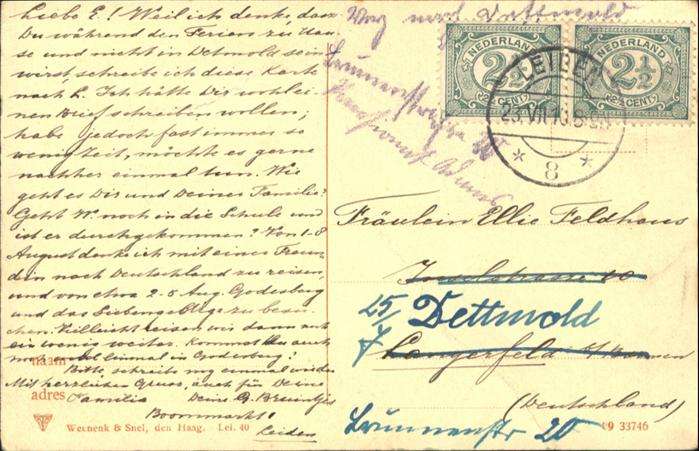 Liebe E.! Weil ich denke, dasz
Du während den Ferien zu Hau-
se und nicht in Detmold sein
wirst, schreibe ich diese Karte
nach L. Ich hätte Dir wohl ei-
nen Brief schreiben wollen;
habe jedoch fast immer so
wenig Zeit, möchte es gerne
nachher einmal tun. Wie
geht es Dir und Deiner Familie?
Geht W. noch in die Schule und
ist er durchgekommen? Von 1-8
August denke ich mit einer Freun-
din nach Deutschland zu reisen,
und von etwa 2-5 Aug. Godesberg
und das Siebengebirge zu besu-
chen. Vielleicht reisen wir dann noch
ein wenig weiter. Kommst Du auch
noch einmal in Godesberg?
Bitte, schreibe mir einmal wieder.
Mit herzlichem Gruss, auch für Deine
Familie Deine G. Bruintjes
Boommarkt
Leiden
naam
adres
Wernenk & Snel, den Haag. Lei. 40
nach Dettmold
Brunnenstrasse
NEDERLAND
2½
2½ CENT
NEDERLAND
2½
2½ CENT
LEIDEN
23 VII 10
* 8 *
Fräulein Ellie Feldhaus
Inselstrasse 20
25/7
Dettmold
Langerfeld b/Barmen
(Deutschland)
Brünnenstr 20
09 33746